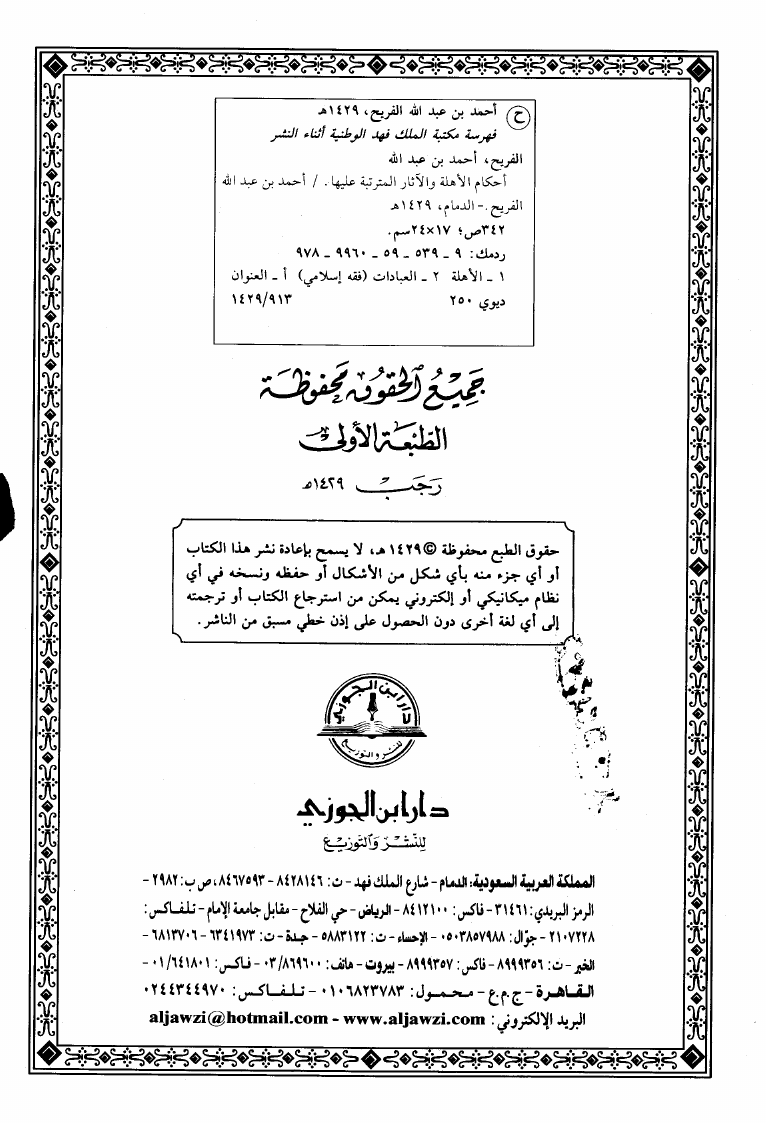 ح أحمد بن عبد الله الفريح، ١٤٢٩هـ
فهرسة مكتبة الملك فهد الوطنية أثناء النشر
الفريح، أحمد بن عبد الله
أحكام الأهلة والآثار المترتبة عليها. / أحمد بن عبد الله
الفريح .- الدمام، ١٤٢٩هـ
٣٤٢ص؛ ١٧×٢٤سم.
ردمك: ٩ ـ ٥٣٩ ـ ٥٩ ـ ٩٩٦٠ ـ ٩٧٨
١ ـ الأهلة ٢ ـ العبادات (فقه إسلامي) أ ـ العنوان
ديوي ٢٥٠ ١٤٢٩/٩١٣
جميع الحقوق محفوظة
الطبعة الأولى
رجب ١٤٢٩هـ
حقوق الطبع محفوظة © ١٤٢٩ هـ، لا يسمح بإعادة نشر هذا الكتاب
أو أي جزء منه بأي شكل من الأشكال أو حفظه ونسخه في أي
نظام ميكانيكي أو إلكتروني يمكن من استرجاع الكتاب أو ترجمته
إلى أي لغة أخرى دون الحصول على إذن خطي مسبق من الناشر.
دار ابن الجوزي
للنشر والتوزيع
دار ابن الجوزي
للنشر والتوزيع
المملكة العربية السعودية: الدمام - شارع الملك فهد - ت: ٨٤٢٨١٤٦ - ٨٤٦٧٥٩٣، ص ب: ٢٩٨٢ -
الرمز البريدي: ٣١٤٦١ - فاكس: ٨٤١٢١٠٠ - الرياض - حي الفلاح - مقابل جامعة الإمام - تلفاكس:
٢١٠٧٢٢٨ - جوّال: ٠٥٠٣٨٥٧٩٨٨ - الإحساء - ت: ٥٨٨٣١٢٢ - جدة - ت: ٦٣٤١٩٧٣ - ٦٨١٣٧٠٦ -
الخبر - ت: ٨٩٩٩٣٥٦ - فاكس: ٨٩٩٩٣٥٧ - بيروت - هاتف: ٠٣/٨٦٩٦٠٠ - فاكس: ٠١/٦٤١٨٠١ -
القاهرة - ج.م.ع - محمول: ٠١٠٦٨٢٣٧٨٣ - تلفاكس: ٠٢٤٤٣٤٤٩٧٠
البريد الإلكتروني: aljawzi@hotmail.com - www.aljawzi.com